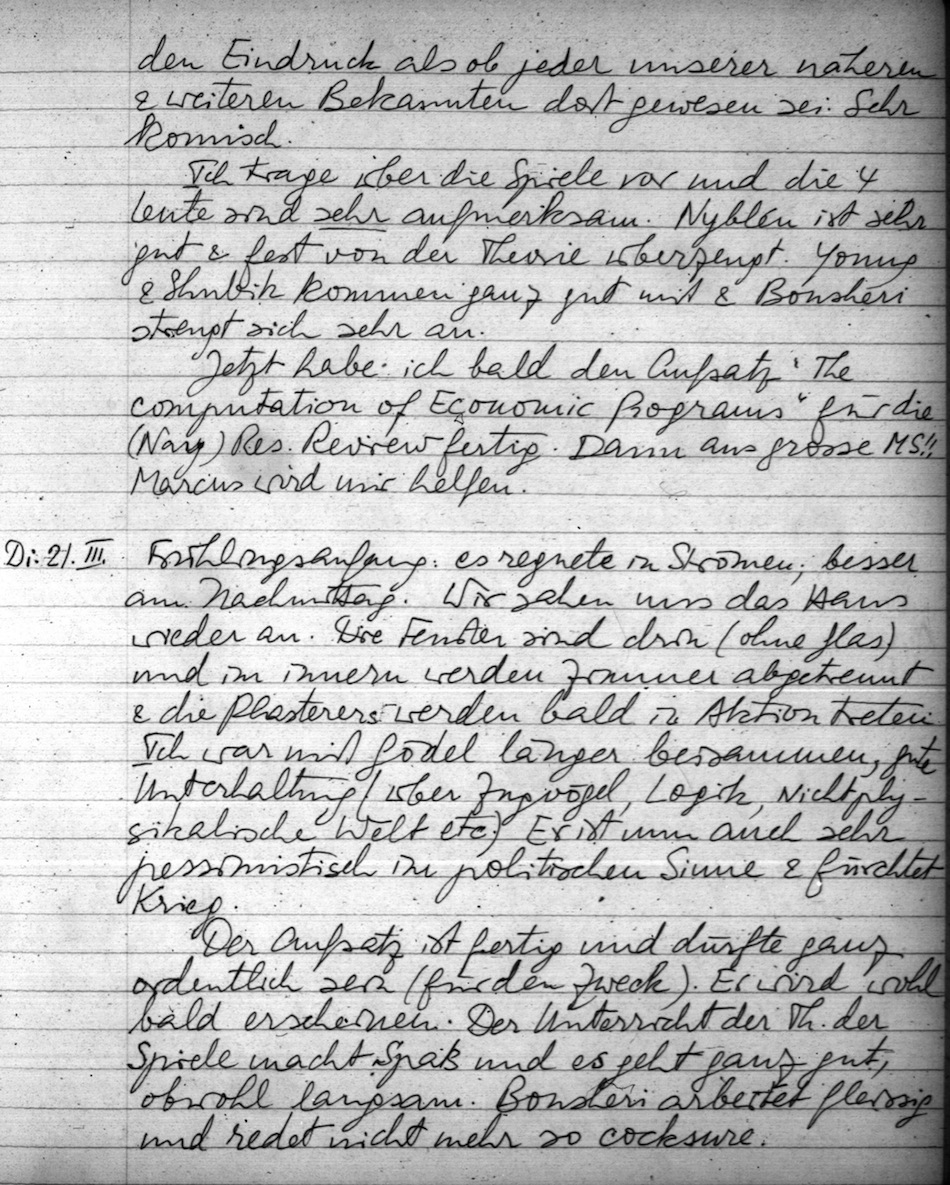 den Eindruck als ob jeder unserer näheren
& weiteren Bekannten dort gewesen sei. Sehr
komisch.
Ich trage über die Spiele vor und die 4
Leute sind sehr aufmerksam. Nyblén ist sehr
gut & fest von der Theorie überzeugt. Young
& Shubik kommen ganz gut mit & Bonsheri
strengt sich sehr an.
Jetzt habe ich bald den Aufsatz "The
computation of Economic Programs" für die
(Navy) Res. Review fertig. Dann ans grosse MS!!
Marcus wird mir helfen.
Di. 21. III. Frühlingsanfang: es regnete in Strömen, besser
am Nachmittag. Wir sahen uns das Haus
wieder an. Die Fenster sind drin (ohne Glas)
und im innern werden Zimmer abgetrennt
& die Plasterers werden bald in Aktion treten
Ich war mit Gödel länger beisammen, gute
Unterhaltung (über Zugvögel, Logik, Nichtphy-
sikalische Welt etc.) Er ist nun auch sehr
pessimistisch im politischen Sinne & fürchtet
Krieg.
Der Aufsatz ist fertig und dürfte ganz
ordentlich sein (für den Zweck). Er wird wohl
bald erscheinen. Der Unterricht der Th. der
Spiele macht Spaß und es geht ganz gut,
obwohl langsam. Bonsheri arbeitet fleissig
und redet nicht mehr so cocksure.